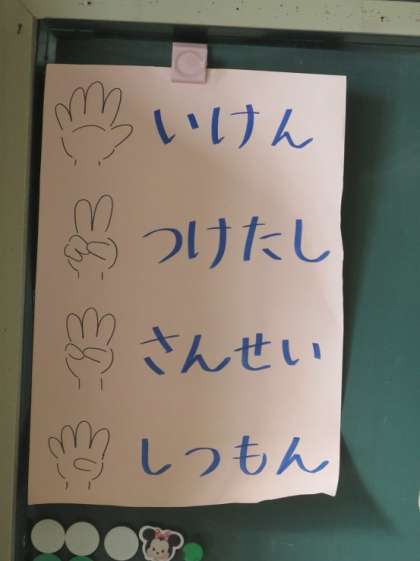 いけん
つけたし
さんせい
しつもん